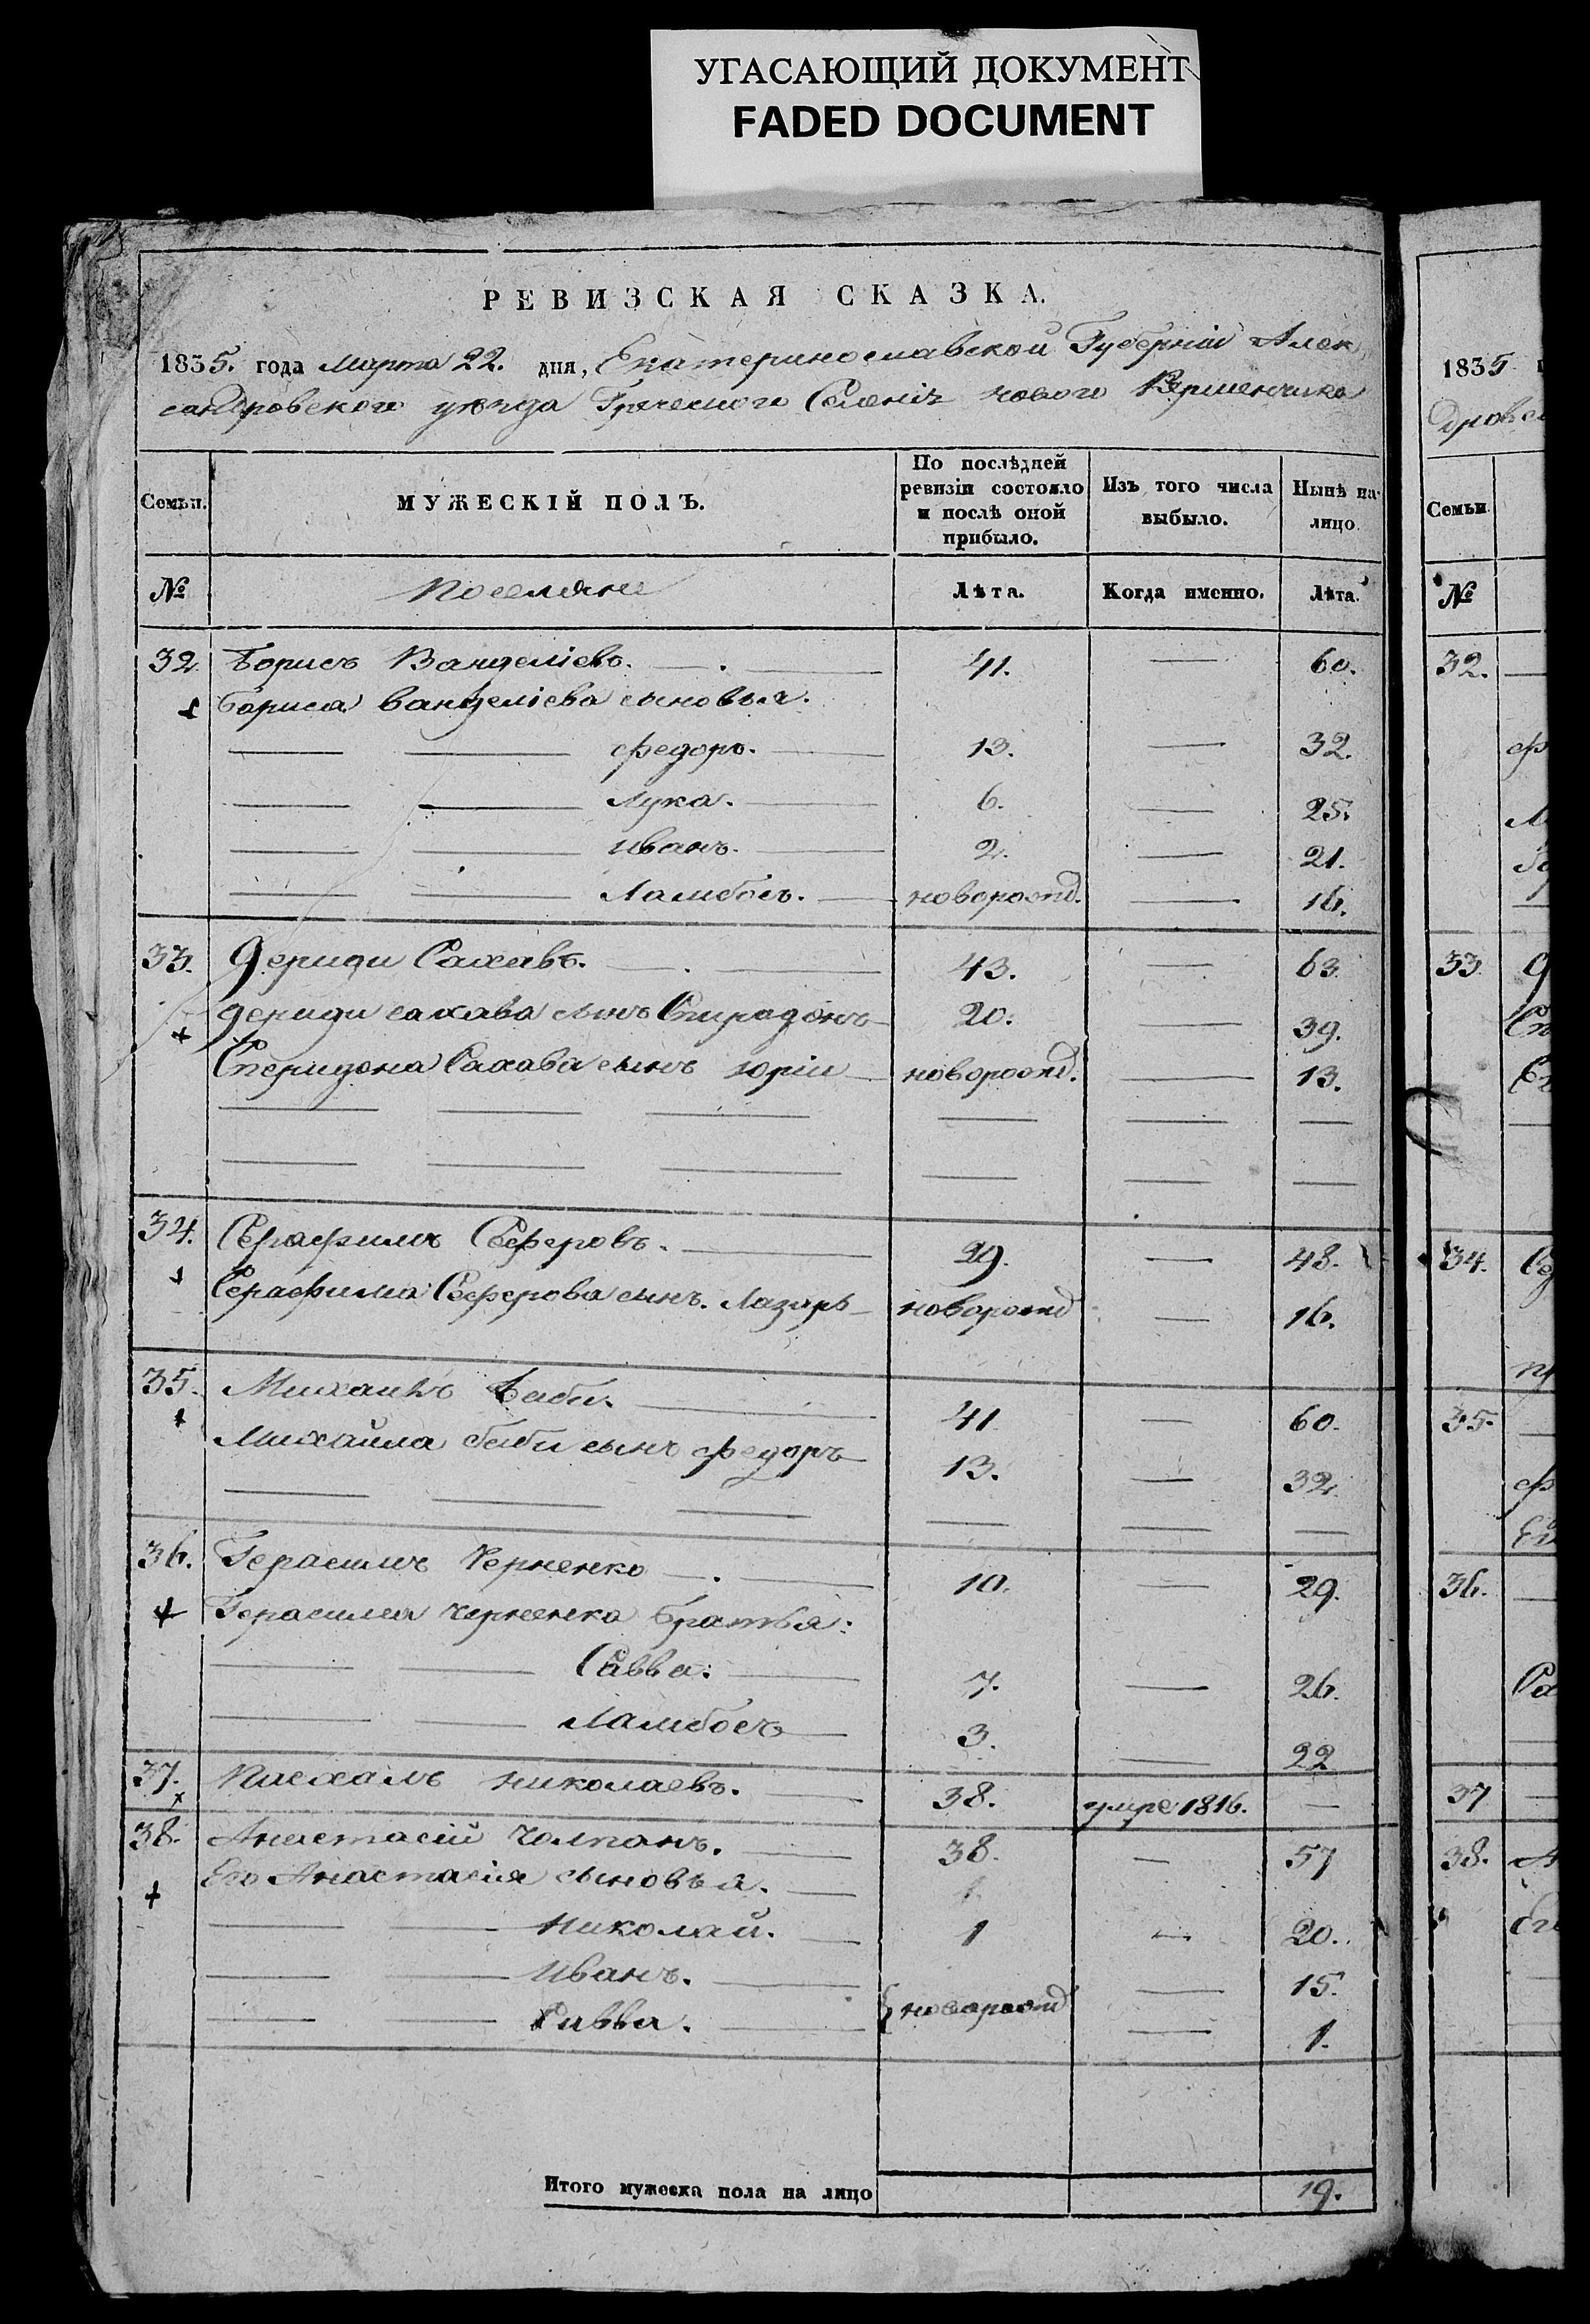 УГАСАЮЩИЙ ДОКУМЕНТ
FADED DOCUMENT
РЕВИЗСКАЯ СКАЗКА.
1835. года Марта 22. дня, Екатеринославской Губерніи Алек
сандровского уезда Греческого Селенія нового Керменчика
Семьи. МУЖЕСКІЙ ПОЛЪ. По послѣдней ревизіи состояло и послѣ оной прибыло. Изъ того числа выбыло. Нынѣ на лицо.
№ Поселяне Лѣта. Когда именно. Лѣта.
32. Борисъ Вангеліевъ. 41. — 60.
Бориса Вангеліева сыновья.
федоръ. 13. — 32.
Лука. 6. — 25.
Иванъ. 2. — 21.
Ламбосъ. новорожд. — 16.
33. Дериди Сахавъ. 43. — 63.
Дериди сахава сынъ Спиридонъ 20. — 39.
Спиридона Сахава сынъ юрій новорожд. — 13.
34. Серафимъ Сеферовъ. 29. — 48.
Серафима Сеферова сынъ. Лазарь новорожд — 16.
35. Михаилъ Баби. 41. — 60.
Михайла баби сынъ федоръ 13. — 32.
36. Герасимъ Черненко 10. — 29.
Герасима черненка братья:
Савва. 7. — 26.
Ламбосъ 3. — 22
37. Пасхалъ николаевъ. 38. умре 1816. —
38. Анастасій Чолпанъ. 38. — 57
Его Анастасія сыновья.
Николай. 1 — 20.
Иванъ. — 15.
Савва. новорожд — 1.
Итого мужеска пола на лицо 19.
1835
дровс
Семьи
№
32.
33
34.
35.
36.
37
38.